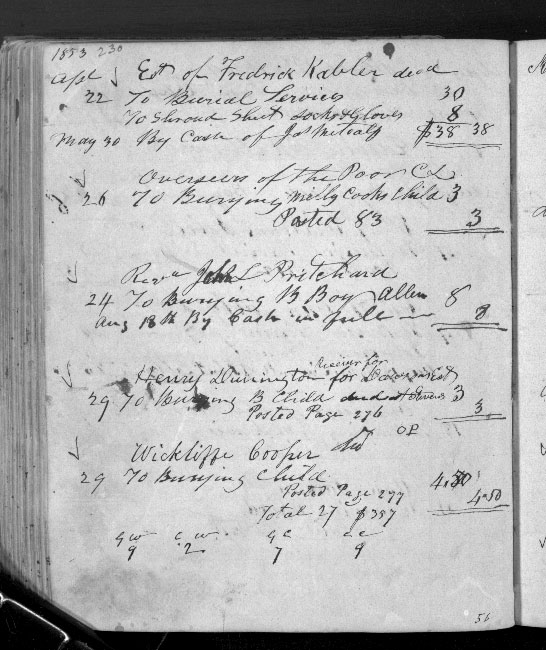 1853 230
Apl Est of Fredrick Kabler decd
22 To Burial Services 30
To Shroud Shut Socks & Gloves 8
May 30 By Cash of Jas Metcalf $38 38
Overseers of the Poor Cl
26 To Burying Milly Cooks Child 3
Posted 83 3
Revd John L Pritchard
24 To Burying B Boy Allen 8
Aug 18th By Cash in full 8
Receiver for
Henry Dunnington for
29 To Burying B Child 3
Posted Page 276 3
OP
Wickliffe Cooper
29 To Burying Child 4.50
Posted Page 277 4.50
Total 27 $357
G W C W G C C C
9 2 7 9
56